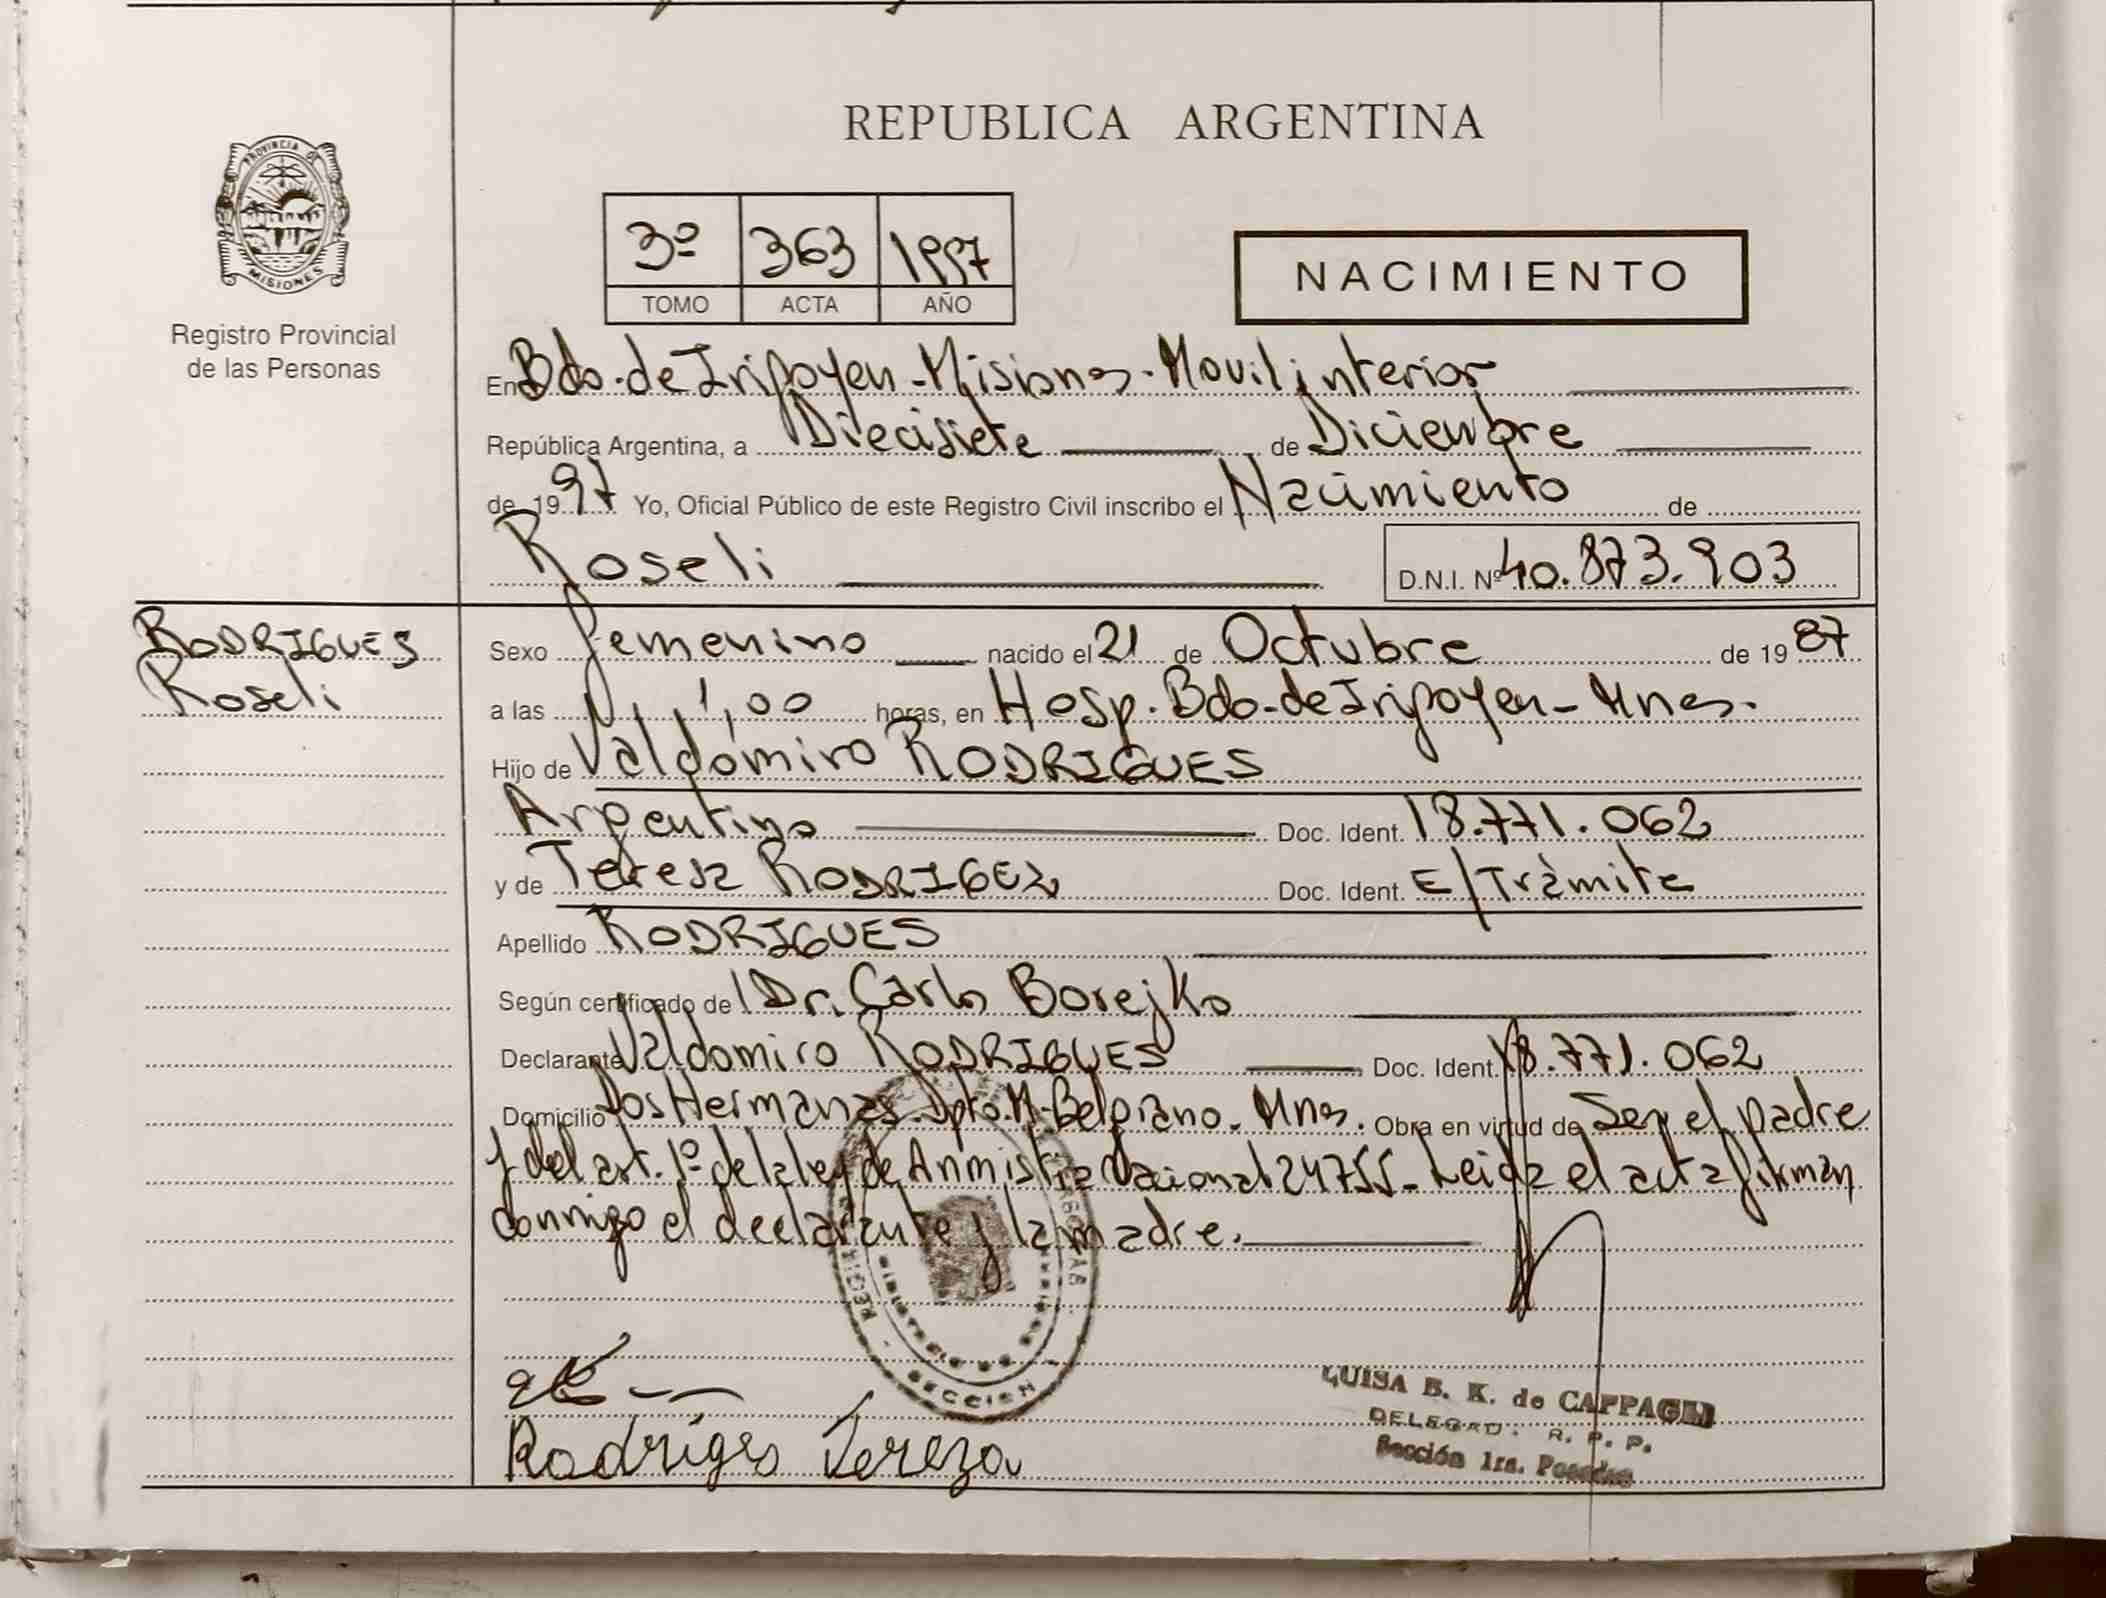 REPUBLICA ARGENTINA
PROVINCIA DE
MISIONES
Registro Provincial
de las Personas
3º 363 1997
TOMO ACTA AÑO
NACIMIENTO
En Bdo. de Irigoyen - Misiones - Movil interior
República Argentina, a Diecisiete de Diciembre
de 1997 Yo, Oficial Público de este Registro Civil inscribo el Nacimiento de
Roseli D.N.I. Nº 40.873.903
RODRIGUES
Roseli
Sexo femenino nacido el 21 de Octubre de 1987
a las 11,00 horas, en Hosp. Bdo. de Irigoyen - Mnes.
Hijo de Valdomiro RODRIGUES
Argentino Doc. Ident. 18.771.062
y de Teresa RODRIGEZ Doc. Ident. E/Trámite
Apellido RODRIGUES
Según certificado de Dr. Carlos Borejko
Declarante Valdomiro RODRIGUES Doc. Ident. 18.771.062
Domicilio Dos Hermanas. Dpto. M. Belgrano. Mnes. Obra en virtud de Ser el padre
y del art. 1º de la ley de Anmistia Nacional 24755 - Leida el acta firman
conmigo el declarante y la madre.
SECCION
Rodriges Tereza
LUISA B. K. de CAPPAGLI
R. P. P.
Sección 1ra. Posadas